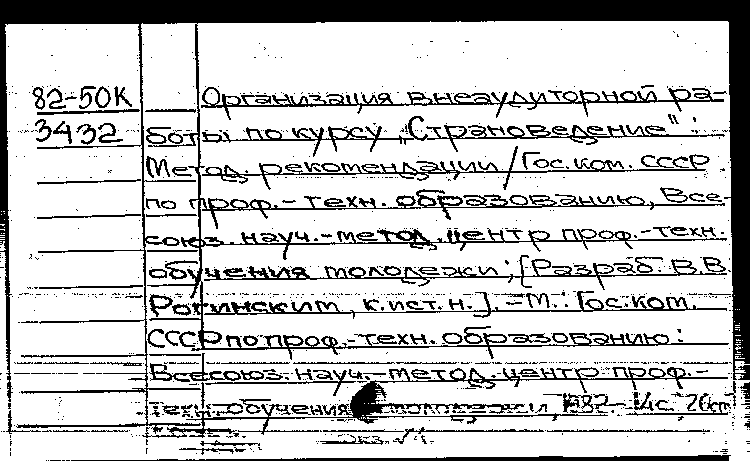 82-50К Организация внеаудиторной ра-
3432 боты по курсу „Страноведение":
Метод. рекомендации / Гос. ком. СССР
по проф.-техн. образованию, Все-
союз. науч.-метод. центр проф.-техн.
обучения молодежи; [Разраб. В.В.
Рогинским, к.ист.н.]. - М.: Гос. ком.
СССР по проф.-техн. образованию:
Всесоюз. науч.-метод. центр проф.-
техн. обучения молодежи, 1982.- 14с., 20см